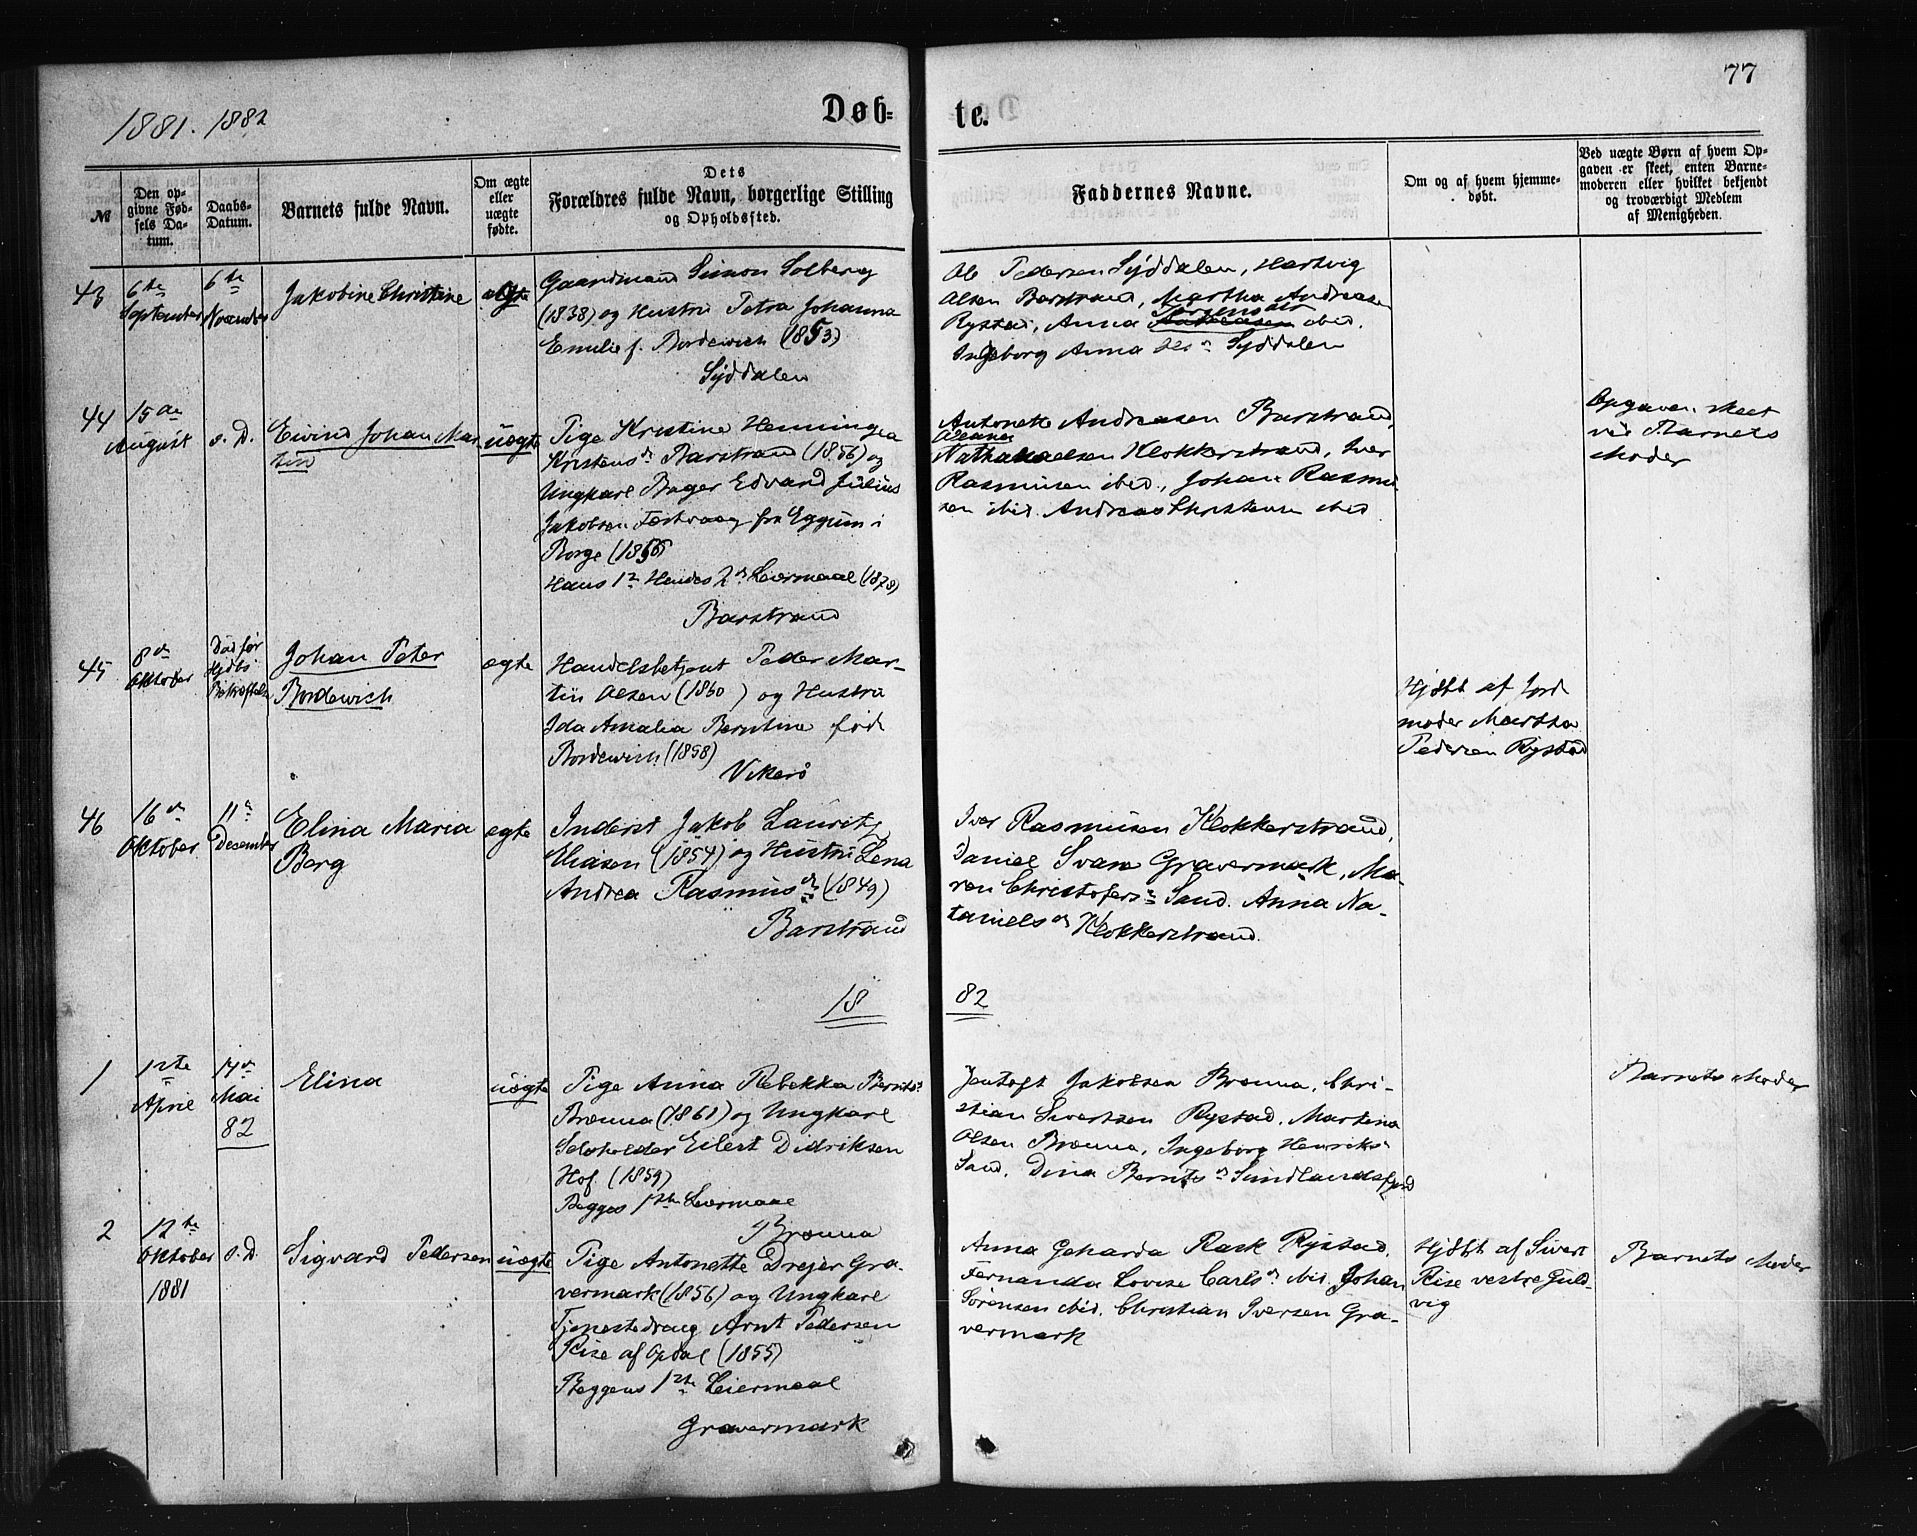 77
1881. 1882
Døb=
te.
№
Den op-
givne Fød-
sels Da-
tum.
Daabs-
Datum.
Barnets fulde Navn.
Om ægte
eller
uægte
fødte.
Dets
Forældres fulde Navn, borgerlige Stilling
og Opholdssted.
Faddernes Navne.
Om og af hvem hjemme-
døbt.
Ved uægte Børn af hvem Op-
gaven er skeet, enten Barne-
moderen eller hvilket bekjendt
og troværdigt Medlem
af Menigheden.
43
6te
September
6te
November
Jakobine Christine
ægte
Gaardmand Simon Solberg
(1838) og Hustru Petra Johanna
Emilie f. Bordewich (1853)
Syddalen
Ole Pedersen Syddalen, Hartvig
Olsen Barstrand, Martha Andreasen
Rystad, Anna ibid.
Ingeborg Anna Syddalen
44
15de
August
s. D.
Eivind Johan Mar
tin
uægte
Pige Kristine Henningea
Kristensdr Barstrand (1856) og
Ungkarl Bager Edvard Julius
Jakobsen fra Eggum i
Borge (1856)
Hans 1ste Hendes 2det Leiermaal (1878)
Barstrand
Antonette Andreasen Barstrand,
Oleana
Nathanaelsen Klokkerstrand, Iver
Rasmusen ibid., Johan Rasmu-
sen ibid. Andreas Christensen ibid
Opgaven skeet
ved Barnets
Moder
45
8de
Oktober
Død før
Hjdbs
Bekræftelse
Johan Peter
Bordewich
ægte
Handelsbetjent Peder Mar-
tin Olsen (1860) og Hustru
Ida Amalia Berntine født
Bordewich (1858)
Vikerö
Hjdbt af Jord
moder Martha
Pedersen Rystad
46
16de
Oktober
11te
December
Elina Maria
Berg
ægte
Inderst Jakob Lauritz
Eliasen (1854) og Hustru Lena
Andrea Rasmusdr (1849)
Barstrand
Iver Rasmusen Klokkerstrand,
Daniel Svane Gravermark, Ma-
ren Christofersdr Sand. Anna Na-
tanielsdr Klokkerstrand.
18
82
1
12te
April
14de
Mai
82
Elina
uægte
Pige Anna Rebekka Berntsdr
Brenna (1861) og Ungkarl
Selvholder Eilert Didriksen
Hof (1859)
Begges 1ste Leiermaal
Brenna
Jentoft Jakobsen Brenna, Chri-
stian Sivertsen Rystad. Martina
Olsen Brenna, Ingeborg Henriks
Sand. Dina Berntsdr Sundlandsfjord
Barnets Moder
2
12te
Oktober
1881
s. D.
Sigvard Pedersen
uægte
Pige Antonette Drejer Gra-
vermark (1856) og Ungkarl
Tjenestedreng Arnt Pedersen
Rise af Opdal (1855)
Begges 1ste Leiermaal
Gravermark
Anna Geharda Rask Rystad,
Fernanda Lovise Carlsdr ibid. Johan
Sörensen ibid. Christian Iversen Gra-
vermark
Hjdbt af Sivert
Rise vestre Guld-
vig
Barnets Moder